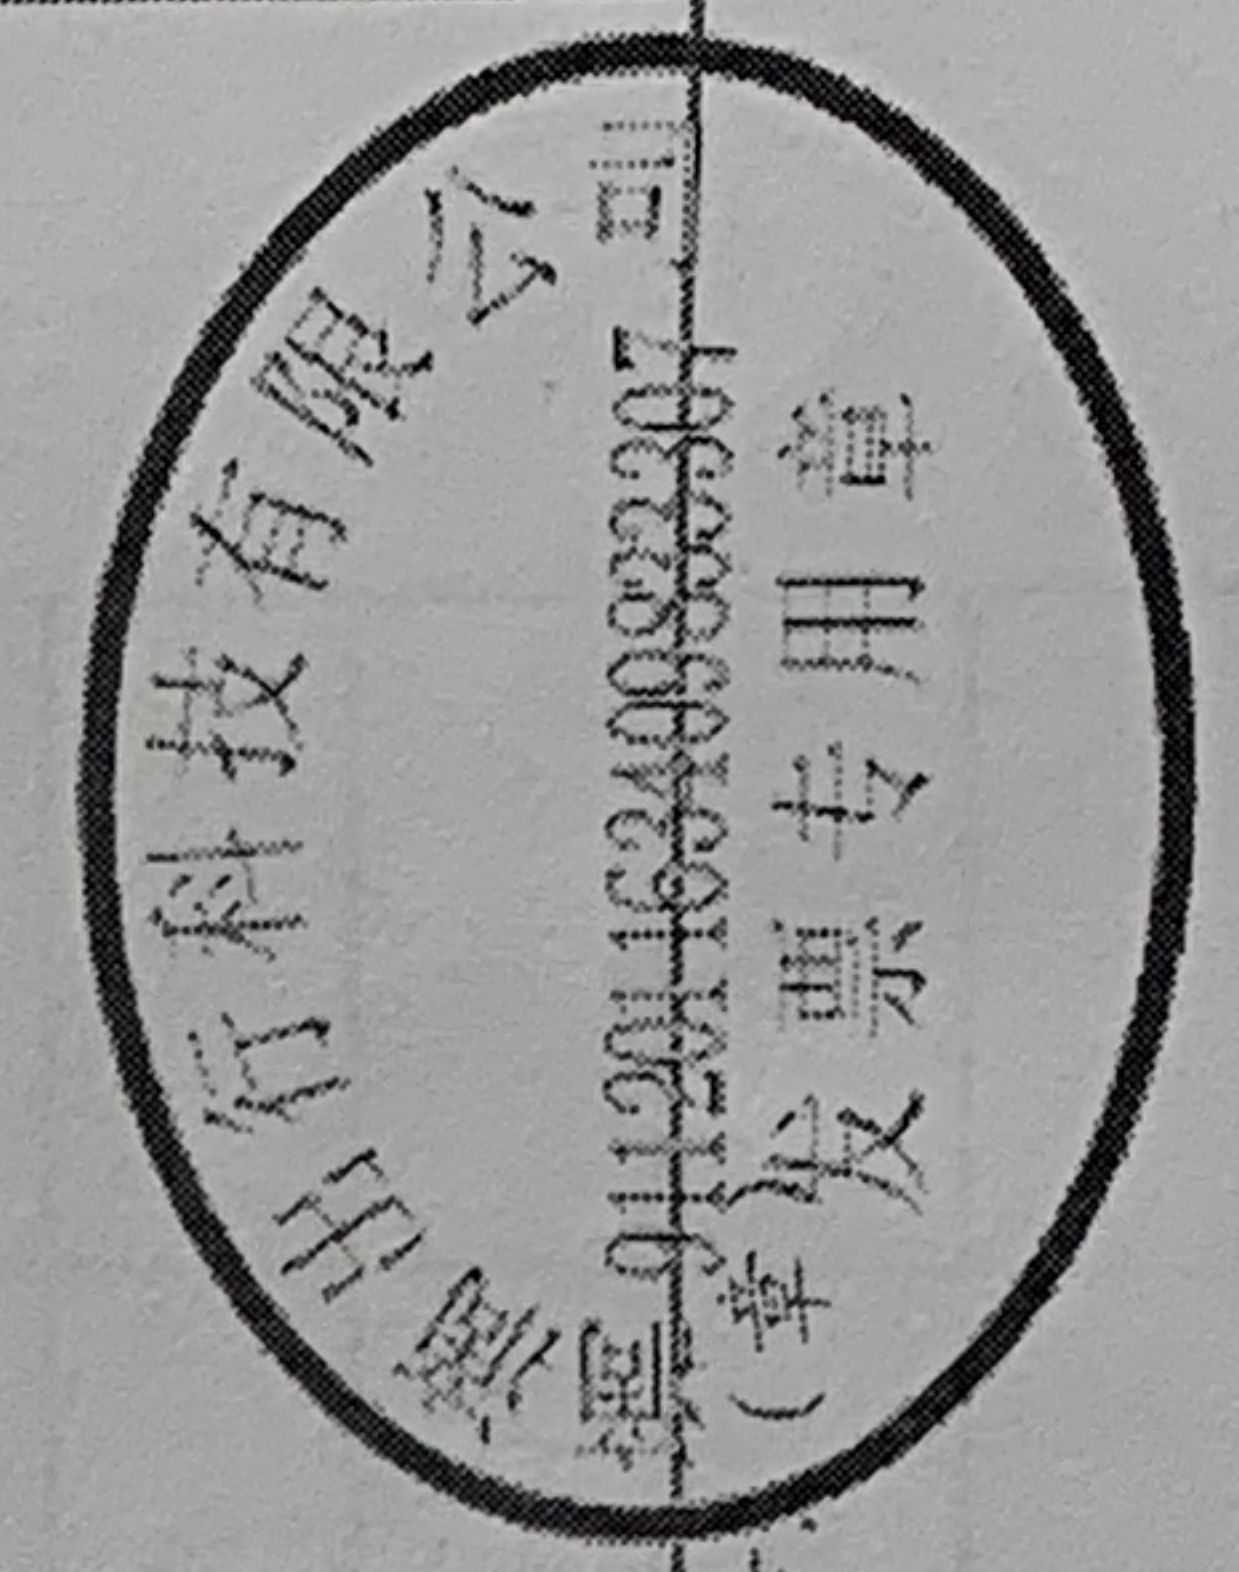 滴滴出行科技有限公司
911201163409833307
发票专用章
(章